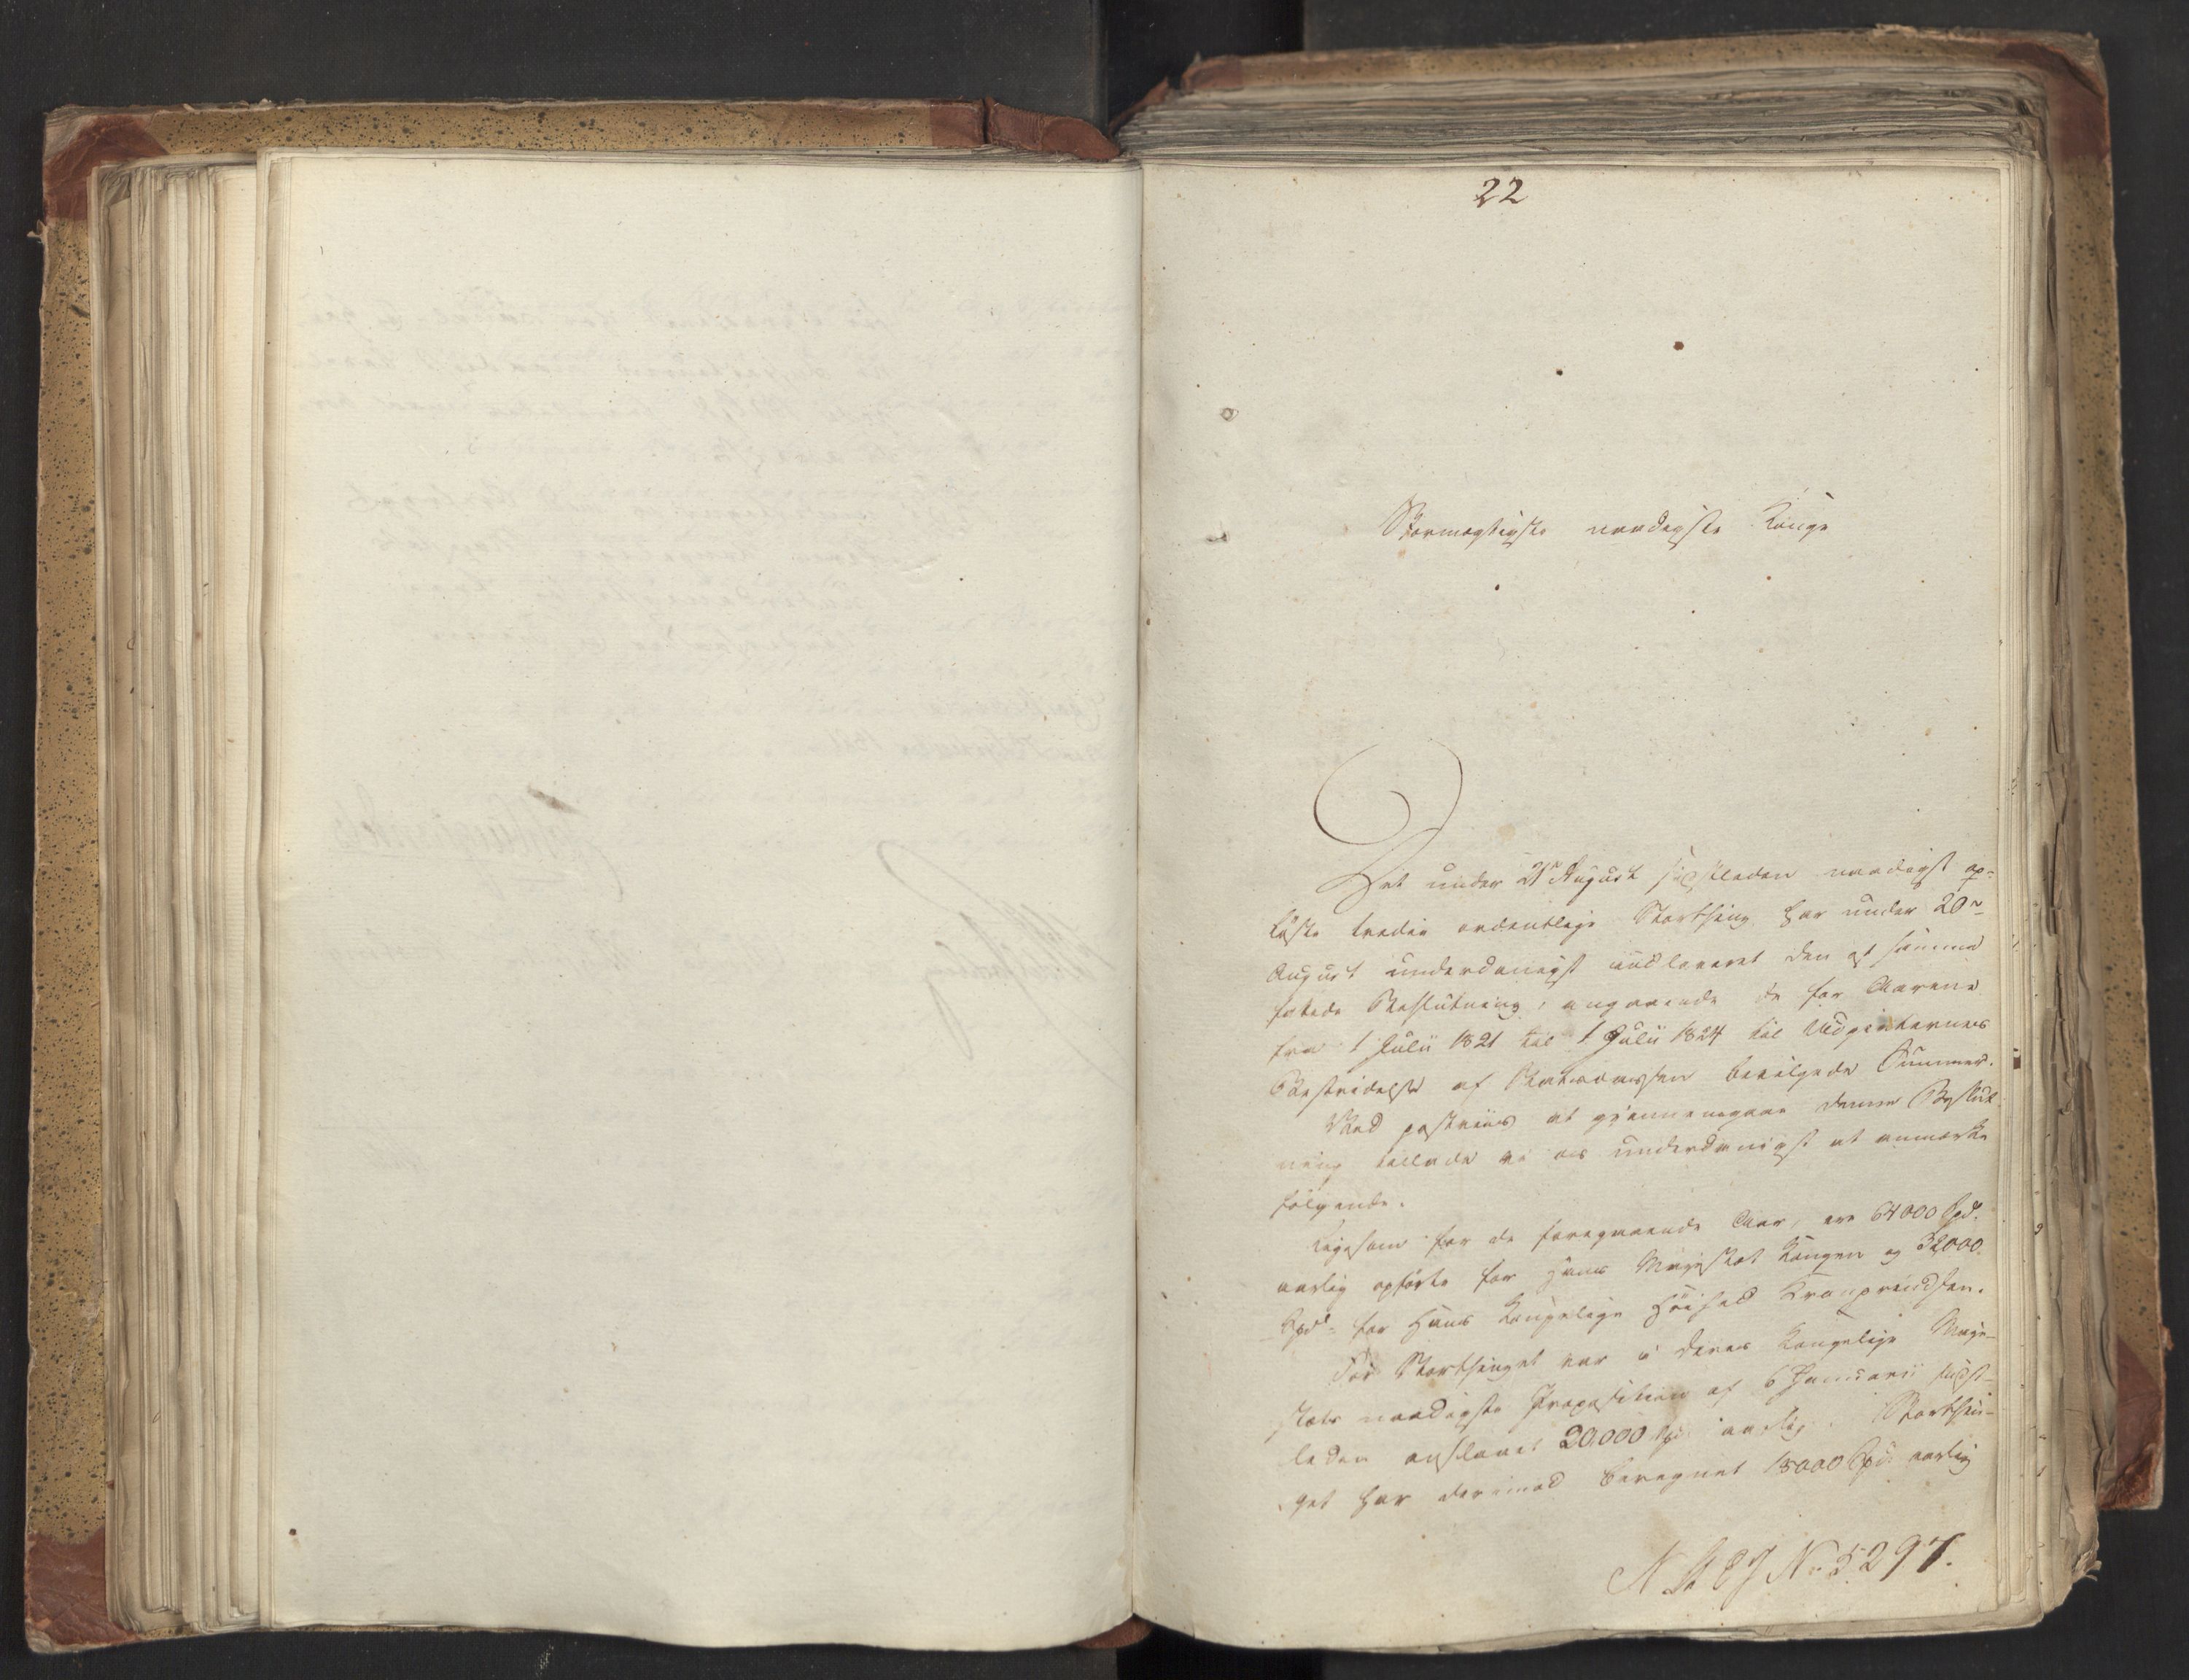 22
Stormægtigste naadigste Konge
Det under 21de August sidstleden naadigst op-
löste tredie ordentlige Storthing har under 20de
August underdanigst indleveret den af samme
fattede Beslutning, angaaende de for Aarene
fra 1 Julii 1821 til 1 Julii 1824 til Udgivternes
Bestridelse af Statscassen bevilgede Summer.
Ved postviis at gjennemgaae denne Beslut-
ning tillade vi os underdanigst at anmærke
følgende.
Ligesom for de foregaaende Aar, ere 64000 Spd.
aarlig opförte for Hans Majestæt Kongen og 32000
Spd. for Hans Kongelige Höihed Kronprindsen.
For Storthinget var i Deres Kongelige Maje-
stæts naadigste Proposition af 6 Januarii sidst-
leden anslaaet 20,000 Spd aarlig. Storthin-
get har derimod beregnet 15000 Spd: aarlig
No 5297.